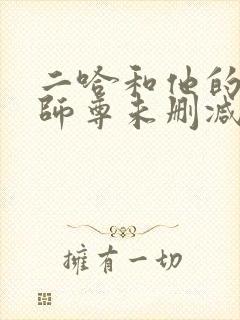 二哈和他的
師尊未删减
擁有一切